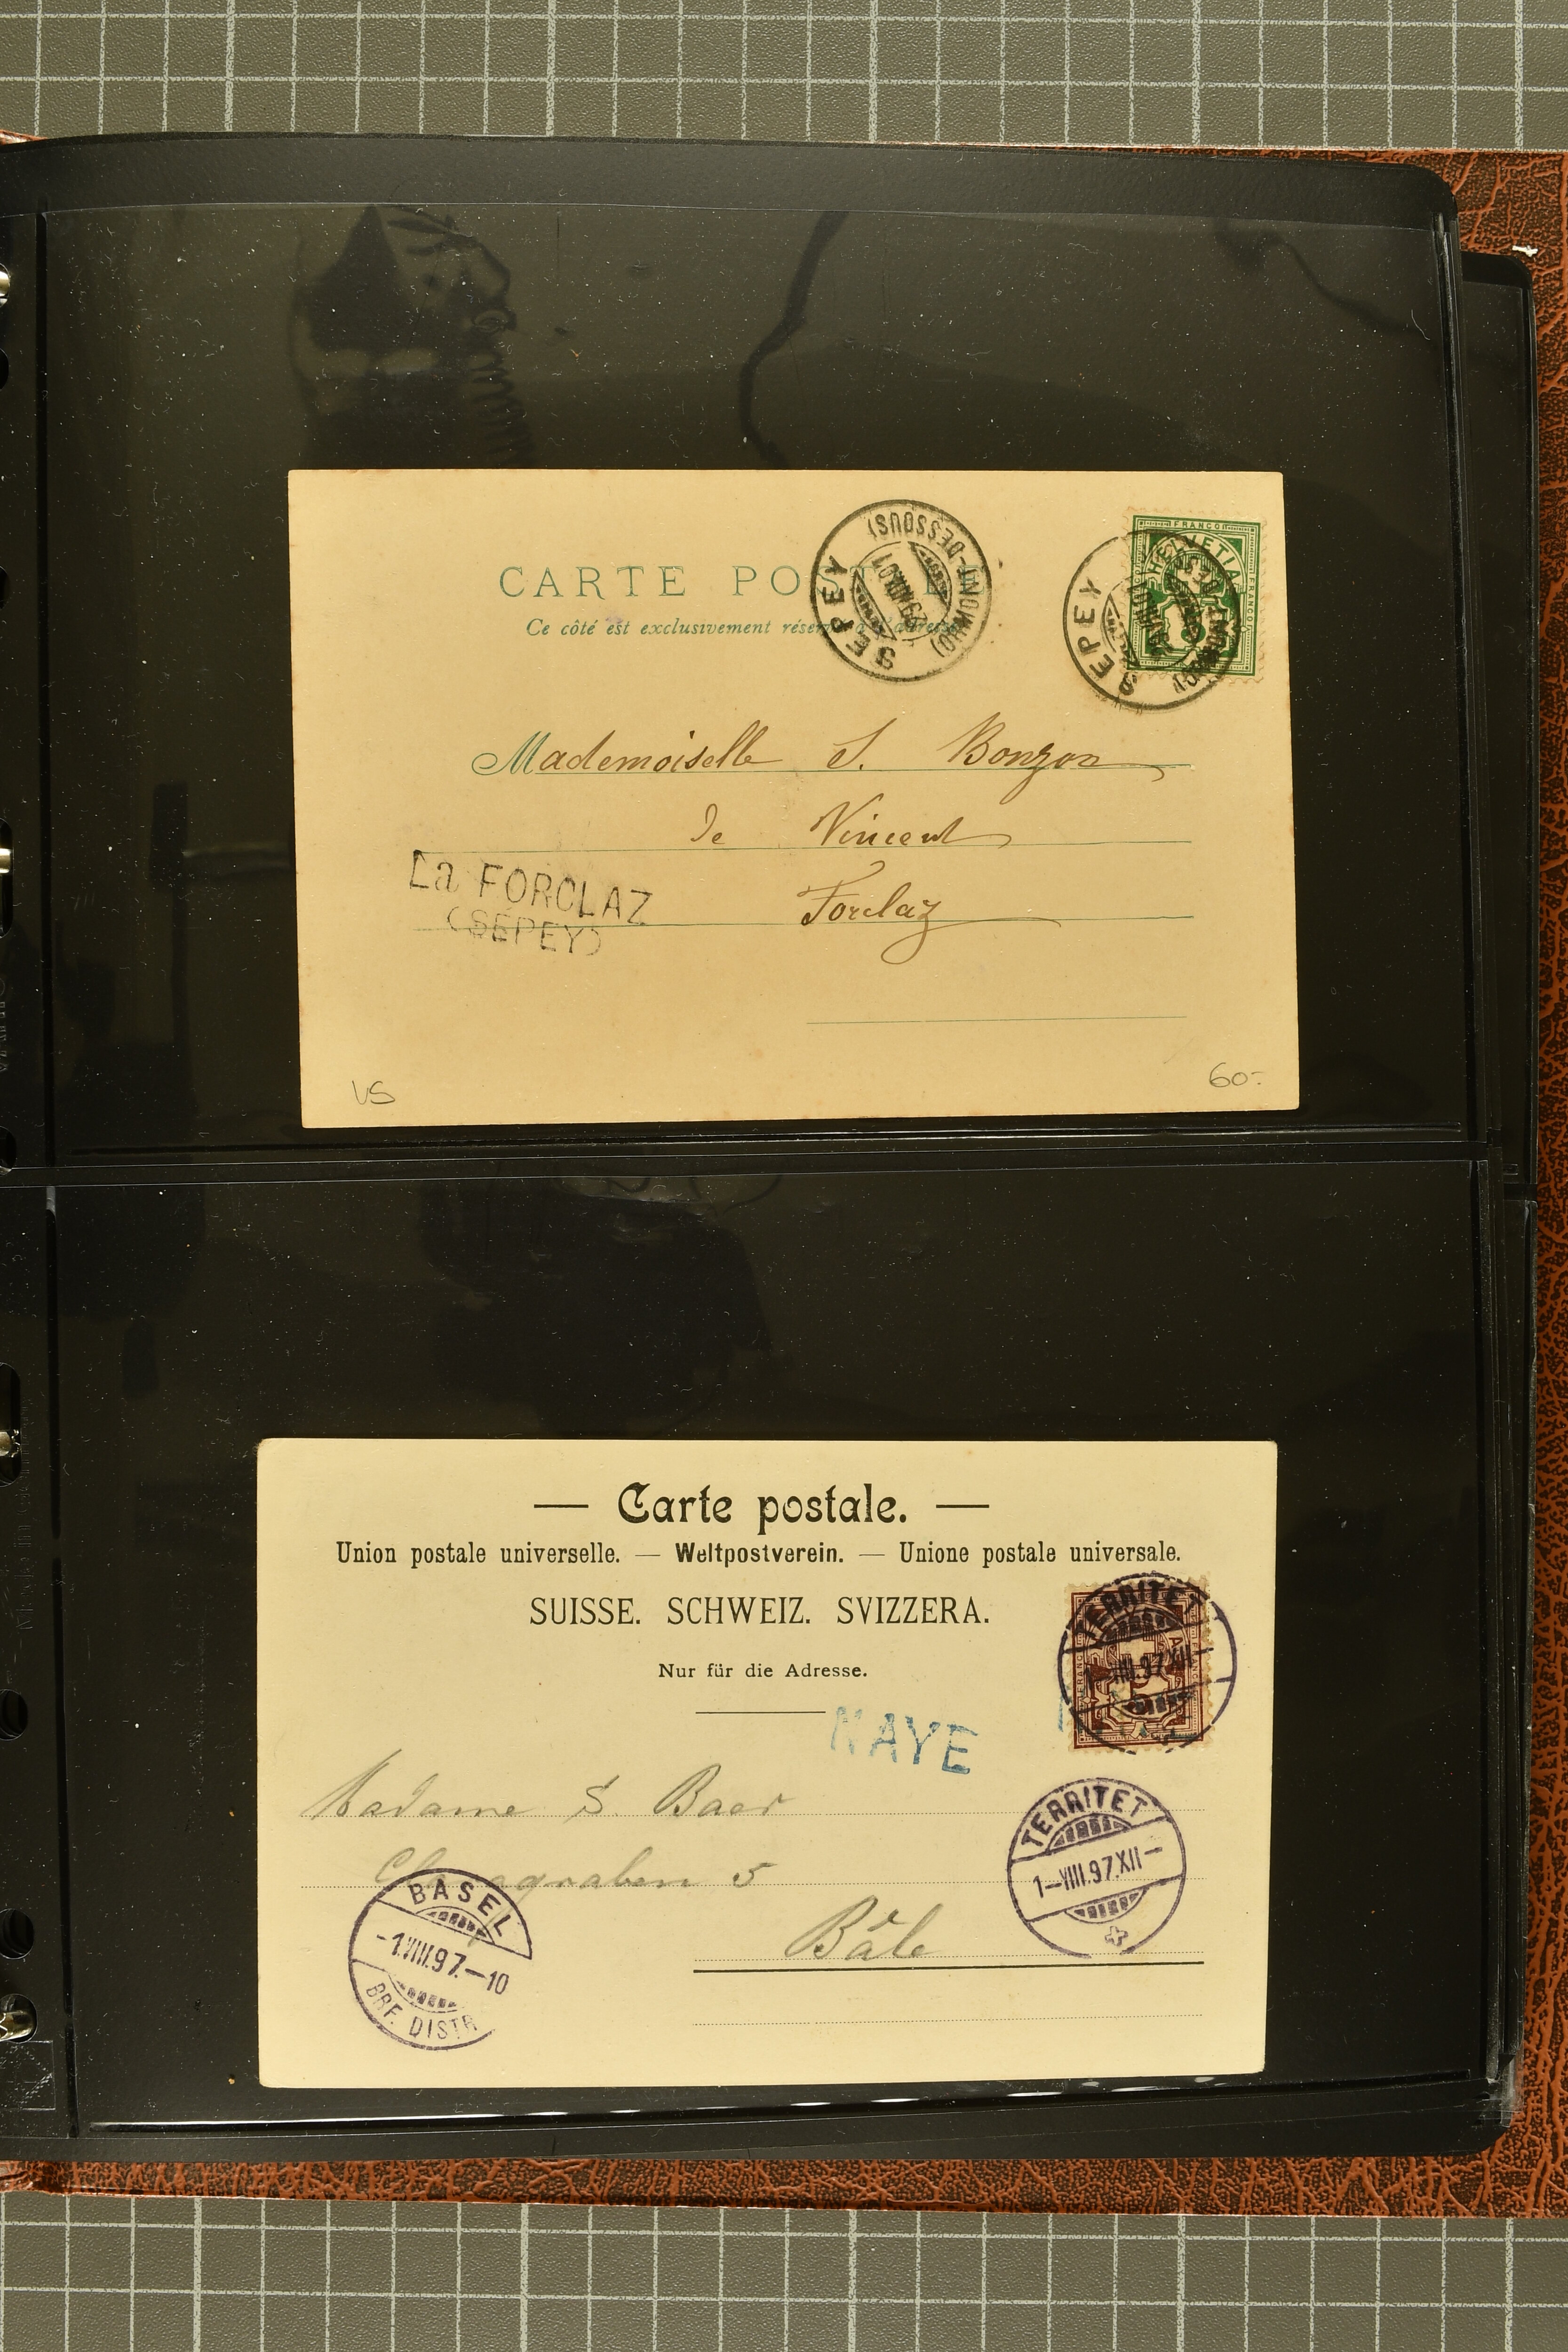 CARTE POSTALE
Ce côté est exclusivement réservé à l'adresse
SEPEY
(ORMONT-DESSOUS)
FRANCO
HELVETIA
SEPEY
Mademoiselle S. Bonzon
de Vincent
Forclaz
La FORCLAZ
(SÉPEY)
VS
60.-
— Carte postale. —
Union postale universelle. — Weltpostverein. — Unione postale universale.
SUISSE. SCHWEIZ. SVIZZERA.
Nur für die Adresse.
TERRITET
VIII.97.XII—
NAYE
Madame S. Baer
5
Bâle
TERRITET
1—VIII.97.XII—
BASEL
-1.VIII.97.—10
BRF. DISTR